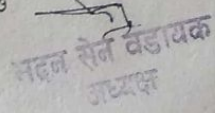 मदन सेन वडायक
अध्यक्ष